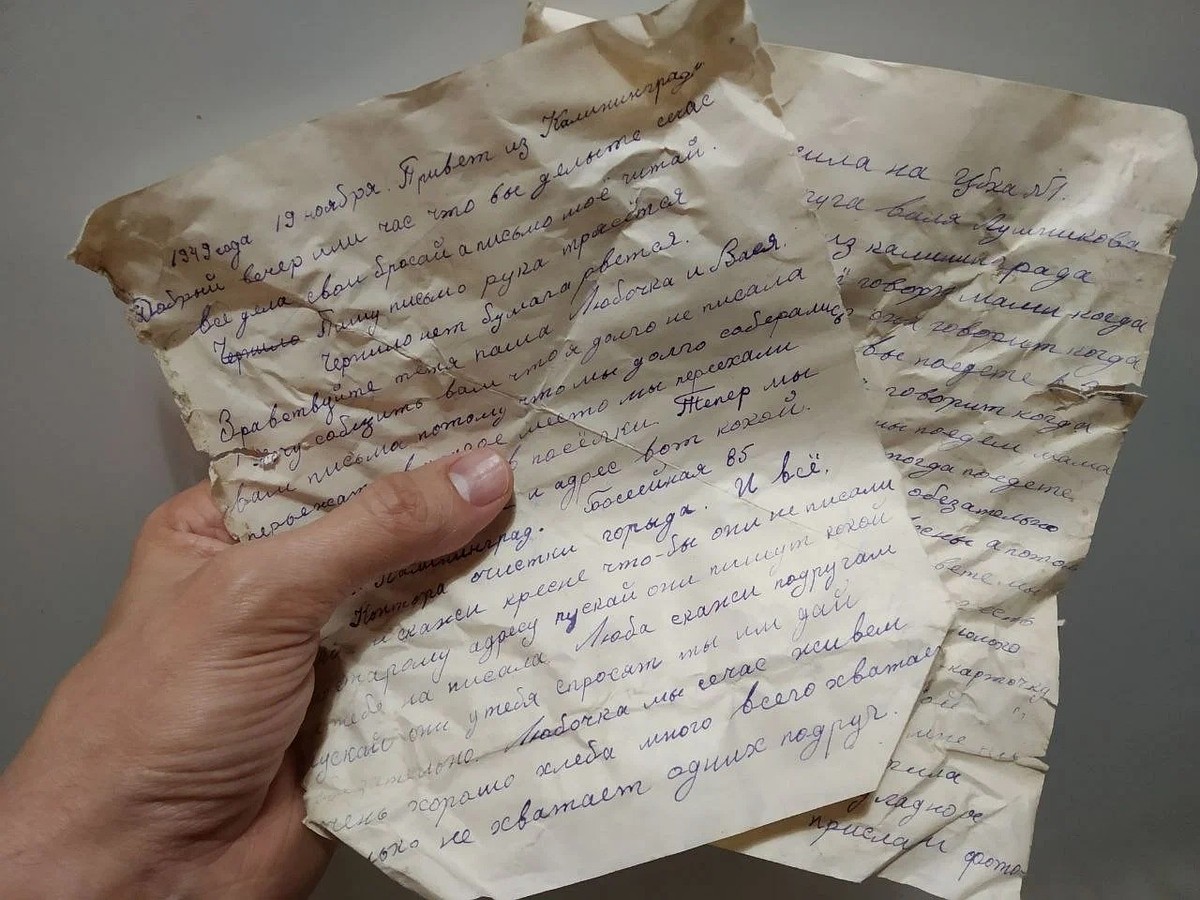 1949 года 19 ноября. Привет из Калининграда
Добрий вечер или час что вы делыте сечас
все дела свои бросай а письмо моё читай.
Чернило Пишу письмо рука трясётся
Чернило нет бумага рвется.
Зравствуйте тётя паша Любочка и Вася.
Хочу собщить вам что я долго не писала
вам письма потому что мы долго саберались
переежат место мы переехали
посёлки. Тепер мы
и адрес вот кокой.
Калининград. Боссейная 85
Контора очистки горыда. И всё.
и скажи кресне что-бы они не писали
старому адресу пускай они пишут кокой
тебе на писала. Люба скажи подругам
пускай они у тебя спросят ты им дай
Любочка мы сечас живем
очень хорошо хлеба много всего хватает
только не хватает одних подруг.
сила на
валя Лумпикова
из калининграда
говорю мами когда
она говорит когда
вы поедете
говорит когда
мы поедем мама
тогда поедете
обезателько
а потом
есть
карточка
мне
ладно
прислам фото-